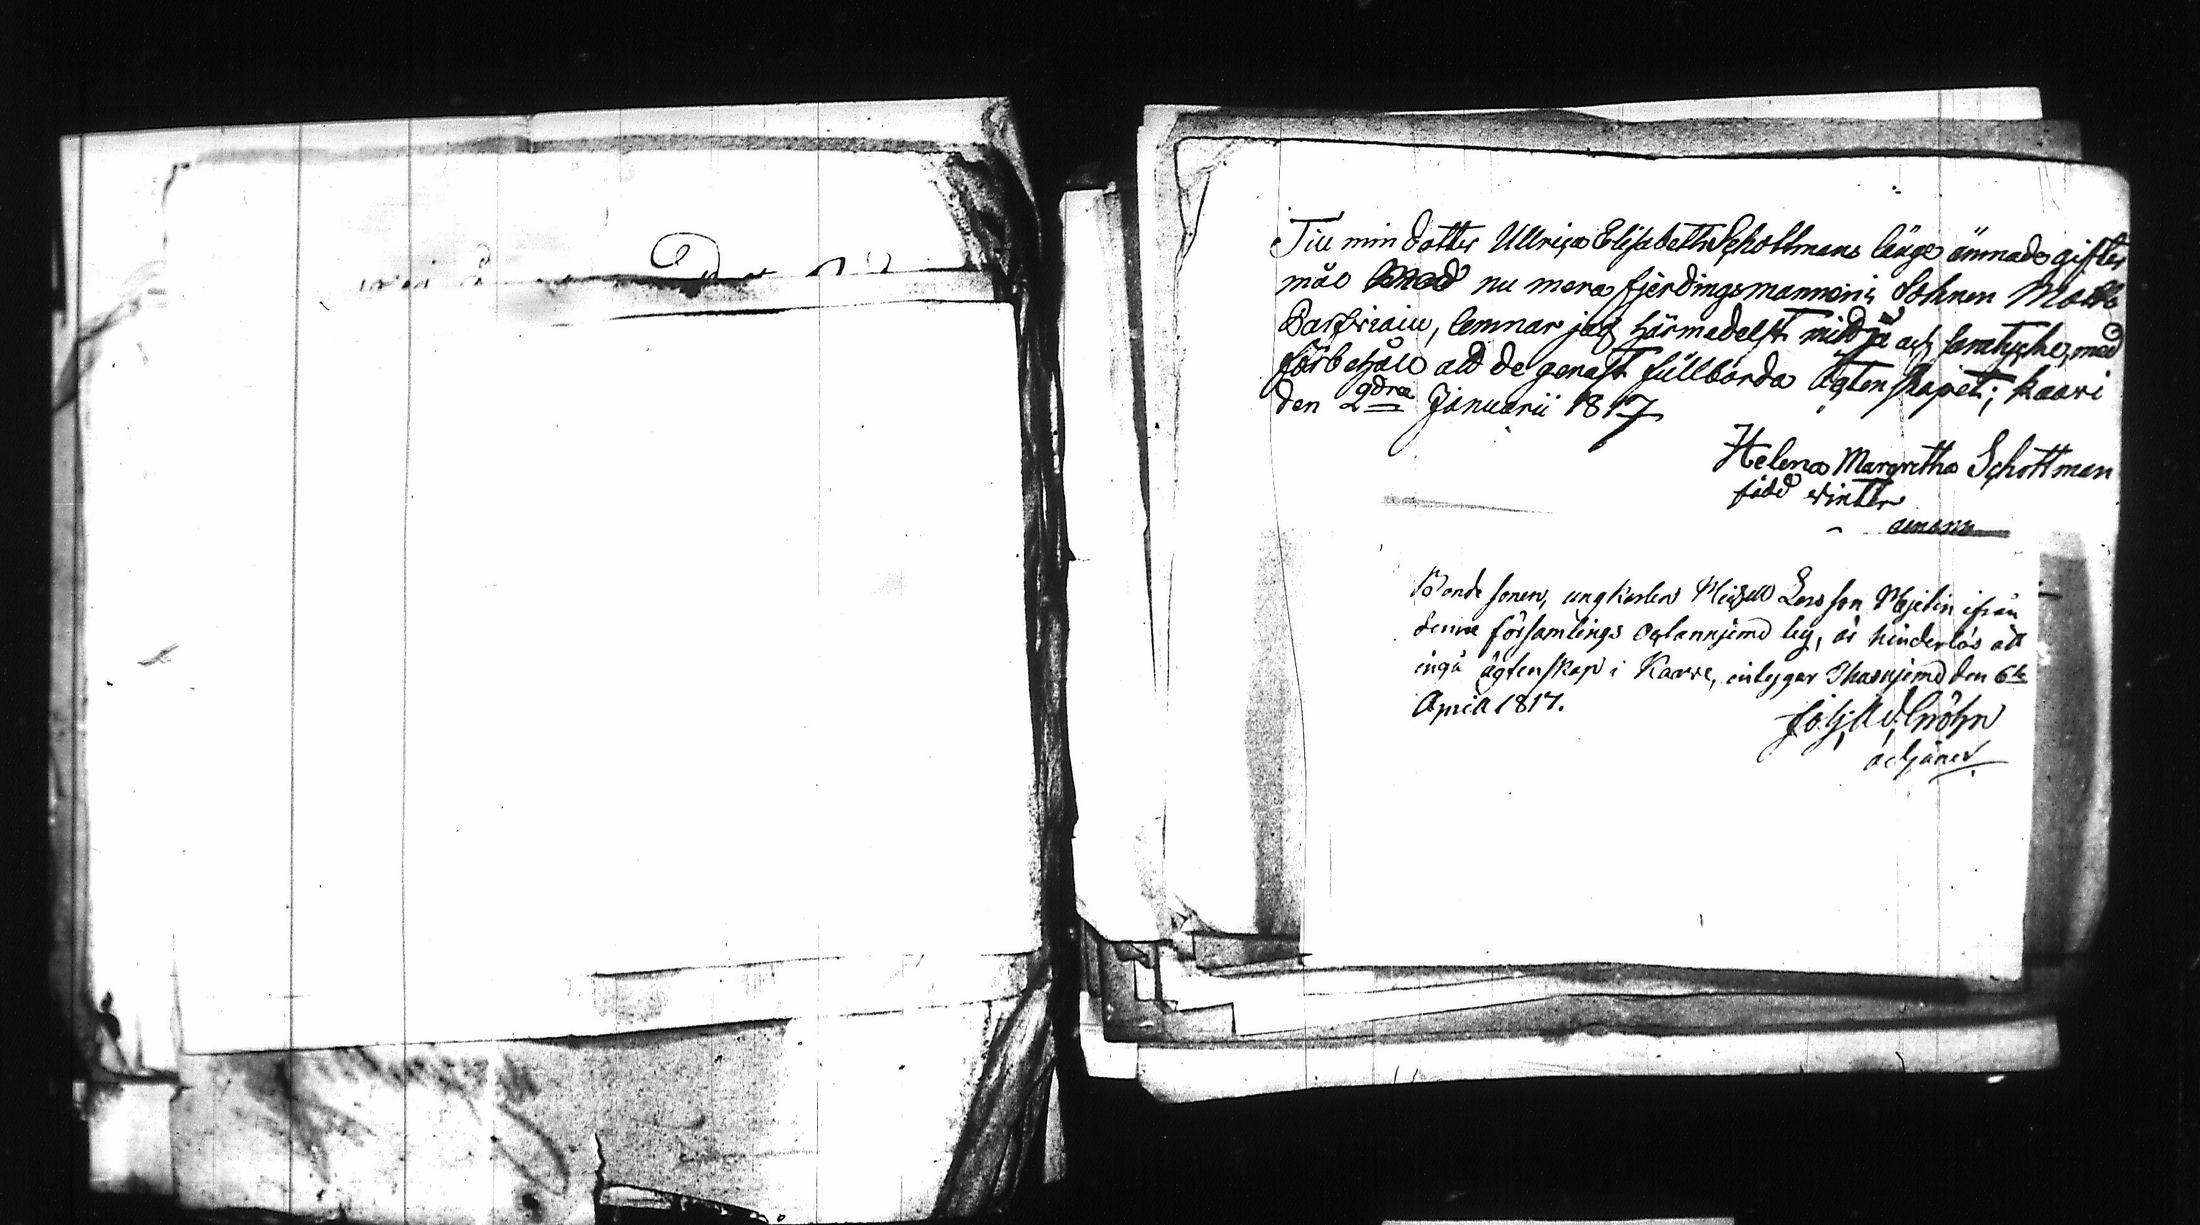 Till min dotter Ullrica Elisabeth Schottmans länge ämnade gifter
mål med nu mera fjerdingsmannens Sohnen Matts
lemnar jag härmedelst mitt ja och samtycke, med
förbehåll att de genast fullborda ägtenskapet; Kaavi
den 2dra Januarii 1817
Helena Margretha Schottman
född Winter
Bonde sonen, ungkarlen Michell Larsson ifrån
denna församlings by, är hinderlös att
ingå ägtenskap i Kaavi, den 6te
April 1817.
Joh. Ad. Cröhn